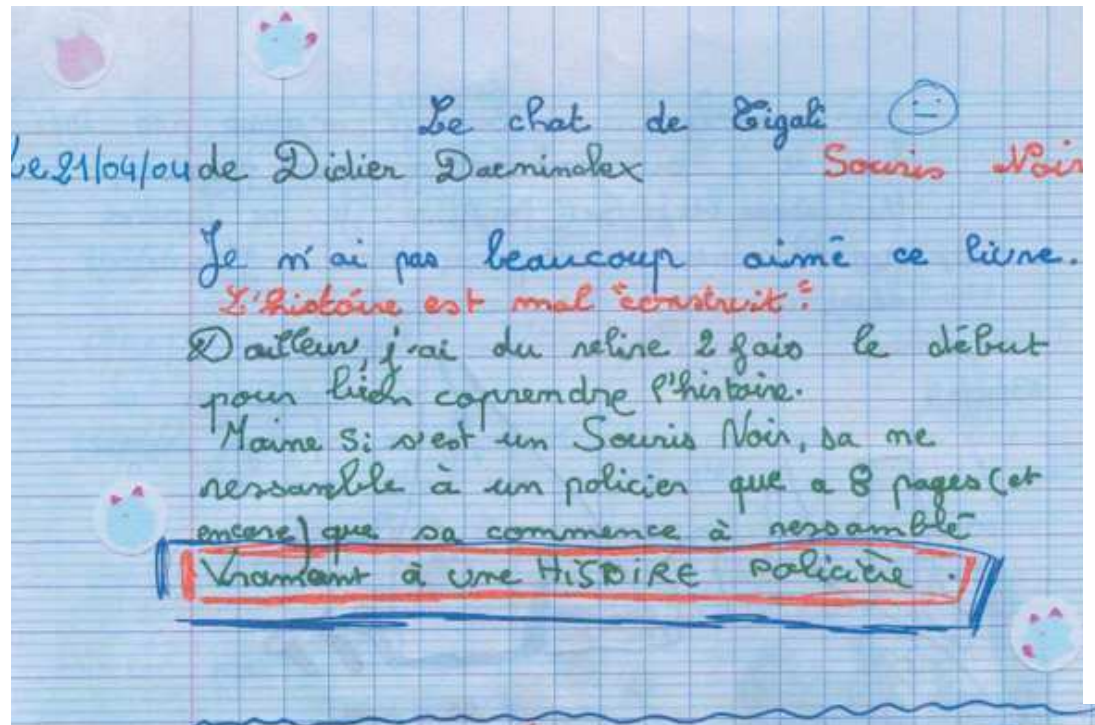 Le chat de Tigali
Le 21/04/04 de Didier Daeninolex Souris Noir
Je n'ai pas beaucoup aimé ce livre.
L'histoire est mal "construit".
D'ailleur, j'ai du relire 2 fois le début
pour bien coprendre l'histoire.
Maime si s'est un Souris Noir, sa me
ressamble à un policier que a 8 pages (et
encore) que sa commence à ressamblé
Vramant à une HISTOIRE Policière.